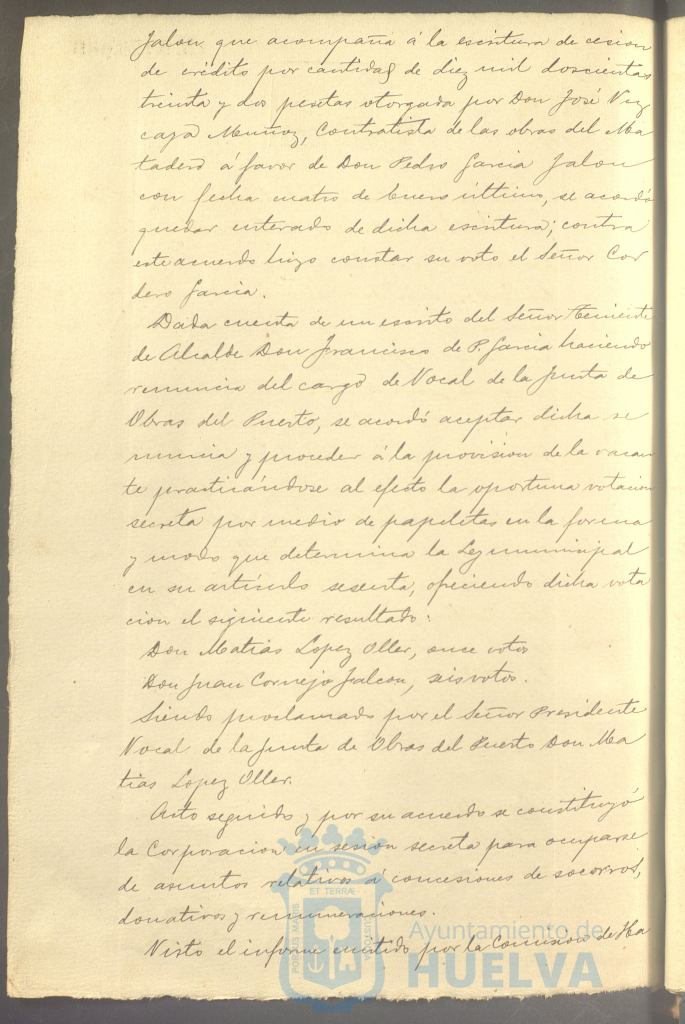 Jalon que acompaña á la escritura de cesion
de crédito por cantidad de diez mil doscientas
treinta y dos pesetas otorgada por Don José Viz
caya Muñoz, Contratista de las obras del Ma
tadero á favor de Don Pedro Garcia Jalon
con fecha cuatro de Enero último, se acordó
quedar enterado de dicha escritura; contra
este acuerdo hizo constar su voto el Señor Cor
dero Garcia.
Dada cuenta de un escrito del Señor Teniente
de Alcalde Don Francisco de P. Garcia haciendo
renuncia del cargo de Vocal de la Junta de
Obras del Puerto, se acordó aceptar dicha re
nuncia y proceder á la provision de la vacan
te practicándose al efecto la oportuna votacion
secreta por medio de papeletas en la forma
y modo que determina la Ley municipal
en su artículo sesenta, ofreciendo dicha vota
cion el siguiente resultado:
Don Matias Lopez Oller, once votos
Don Juan Cornejo Falcon, seis votos.
Siendo proclamado por el Señor Presidente
Vocal de la Junta de Obras del Puerto Don Ma
tias Lopez Oller.
Acto seguido y por su acuerdo se constituyó
la Corporacion en sesion secreta para ocuparse
de asuntos relativos á concesiones de socorros,
donativos y remuneraciones.
Visto el informe emitido por la Comision de Ha
ET TERRÆ
PORTUS MARIS
CUSTODIA
Ayuntamiento de
HUELVA